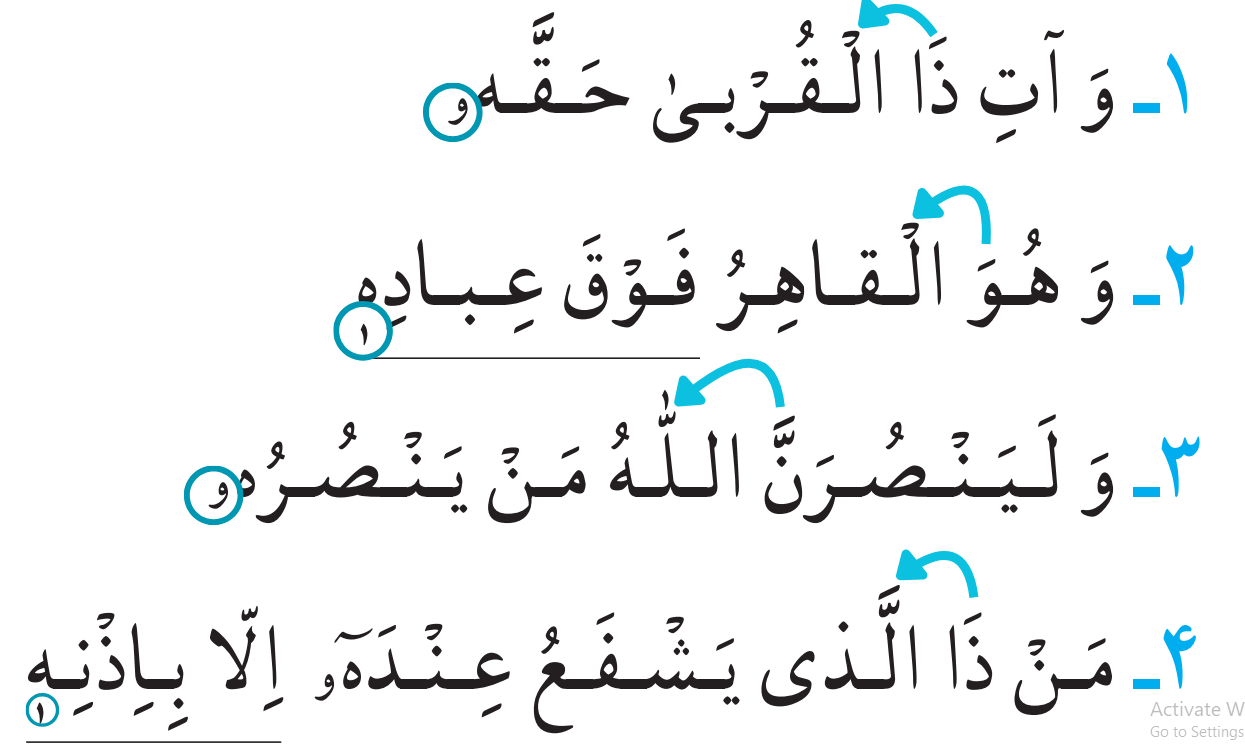 ۱ـ وَ آتِ ذَا الْقُرْبیٰ حَقَّهو
۲ـ وَ هُوَ الْقاهِرُ فَوْقَ عِبادِهٖ
۳ـ وَ لَيَنْصُرَنَّ اللّٰهُ مَنْ يَنْصُرُهو
۴ـ مَنْ ذَا الَّذی يَشْفَعُ عِنْدَهٓو اِلّا بِاِذْنِهٖ
Activate W
Go to Settings